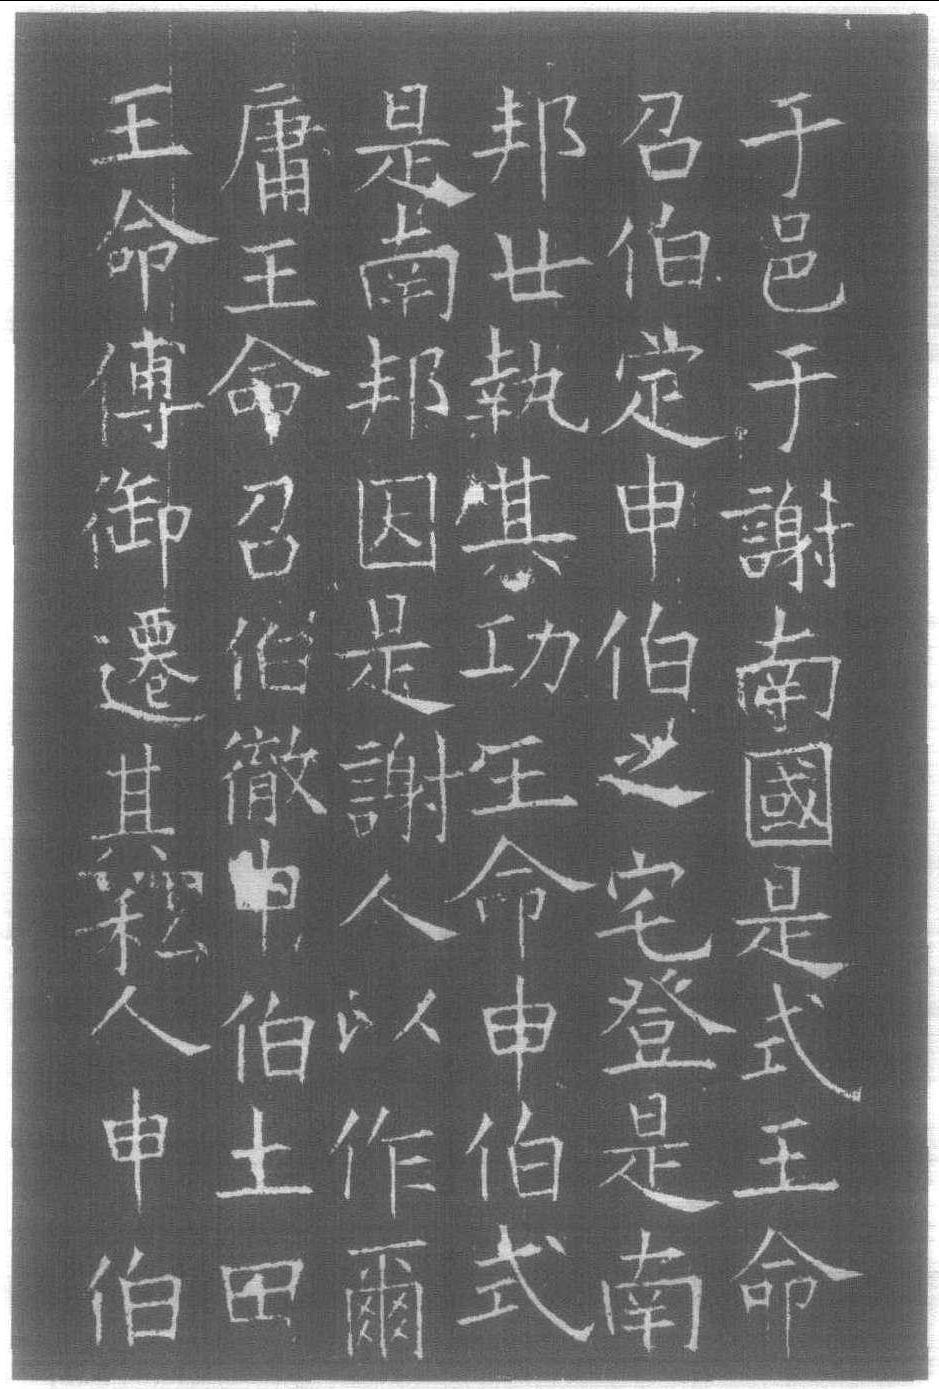 于邑于謝南國是式王命
召伯定申伯之宅登是南
邦世執其功王命申伯式
是南邦因是謝人以作爾
庸王命召伯徹申伯土田
王命傅御遷其私人申伯